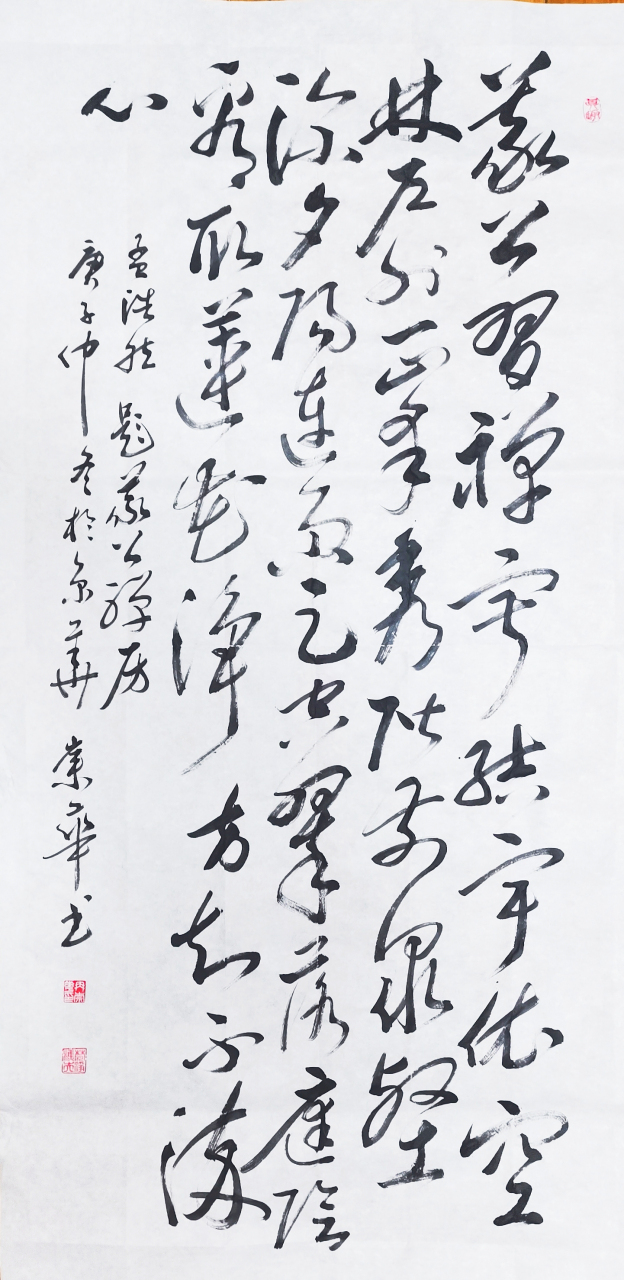 義公習禪寂結宇依空
林户外一峯秀階前衆壑
深夕陽連雨足空翠落庭陰
看取蓮花淨方知不染
心
孟浩然 題義公禪房
庚子仲冬於京華 華书